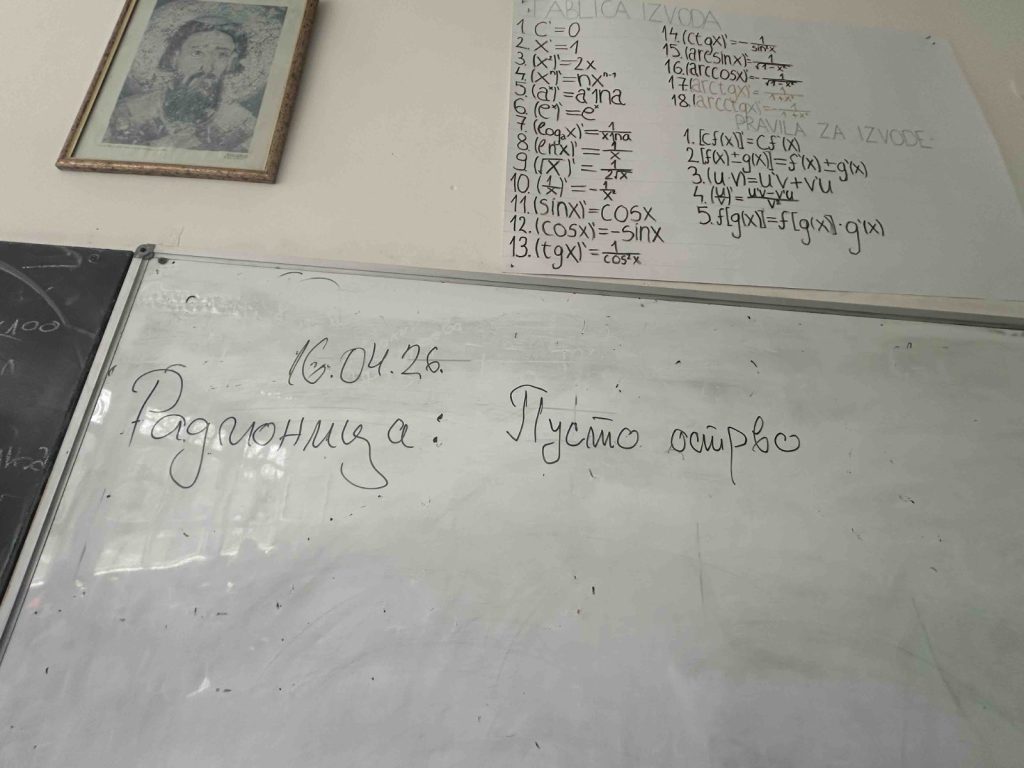 TABLICA IZVODA
1. C'=0
2. X'=1
3. (X²)'=2x
4. (Xⁿ)'=nxⁿ⁻¹
5. (aˣ)'=aˣlna
6. (eˣ)'=eˣ
7. (logₐx)'=1/xlna
8. (lnx)'=1/x
9. (√x)'=1/2√x
10. (1/x)'=-1/x²
11. (sinx)'=cosx
12. (cosx)'=-sinx
13. (tgx)'=1/cos²x
14. (ctgx)'=-1/sin²x
15. (arcsinx)'=1/√1-x²
16. (arccosx)'=-1/√1-x²
17. (arctgx)'=1/1+x²
18. (arcctgx)'=-1/1+x²
PRAVILA ZA IZVODE:
1. [Cf(x)]'=Cf'(x)
2. [f(x)±g(x)]'=f'(x)±g'(x)
3. (u·v)'=u'v+v'u
4. (u/v)'=u'v-v'u/v²
5. f[g(x)]'=f'[g(x)]·g'(x)
16.04.26.
Радионица: Пусто острво
100